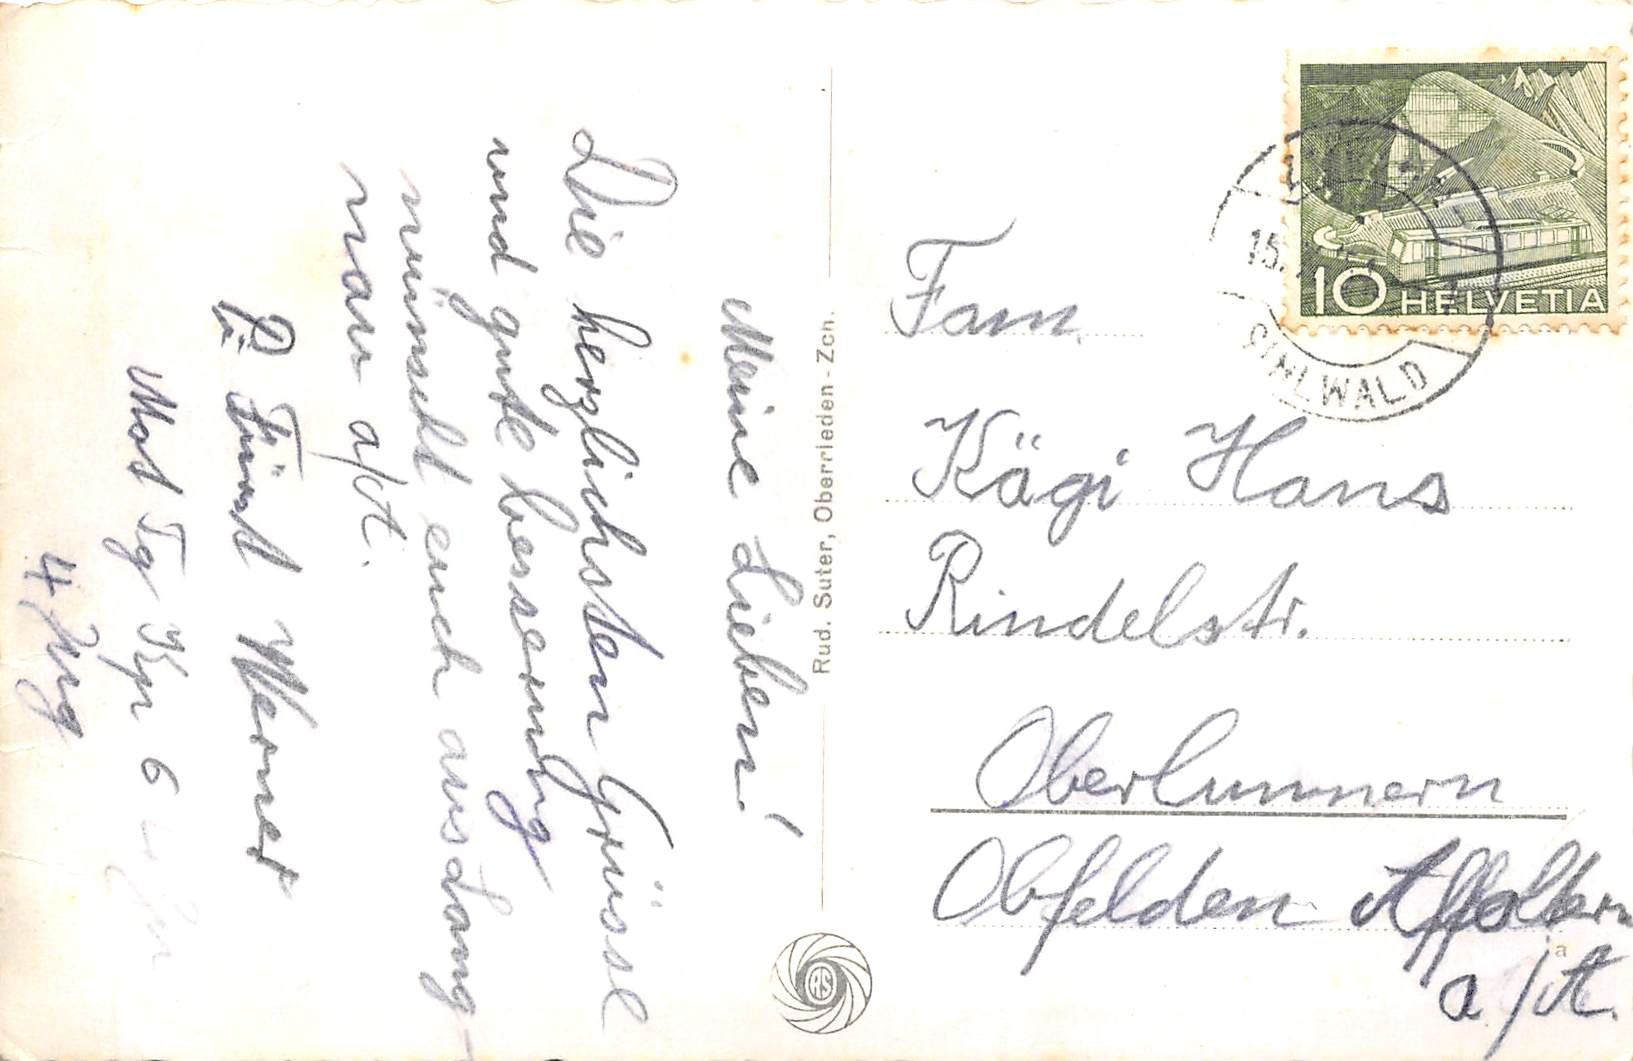 Meine Lieben!
Die herzlichsten Grüsse
und gute besserung
wünscht euch aus Lang-
nau a/A.
P. Fürst Werner
Mot Tg Kp 6
4 Zug
Rud. Suter, Oberrieden - Zch.
Fam.
Kägi Hans
Rindelstr.
Oberlunnern
Obfelden Affoltern
a/A.
a
RS
10 HELVETIA
15.
SIHLWALD